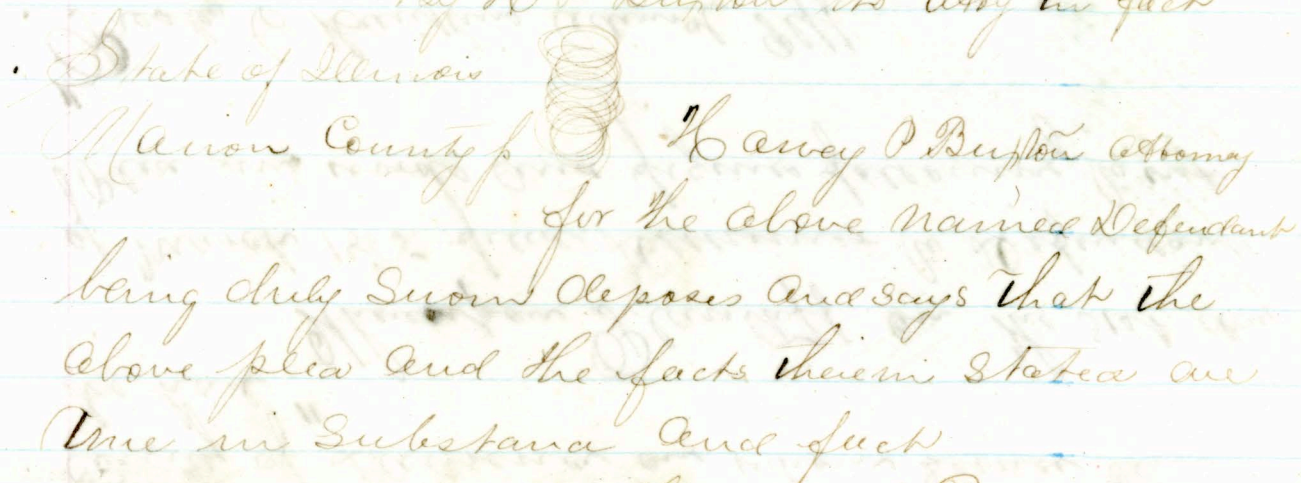 By H P Buxton its atty in fact
State of Illinois
Marion County
Harvey P Buxton Attorney
for the above named Defendant
being duly sworn deposes and says that the
above plea and the facts therein stated are
true in substance and fact